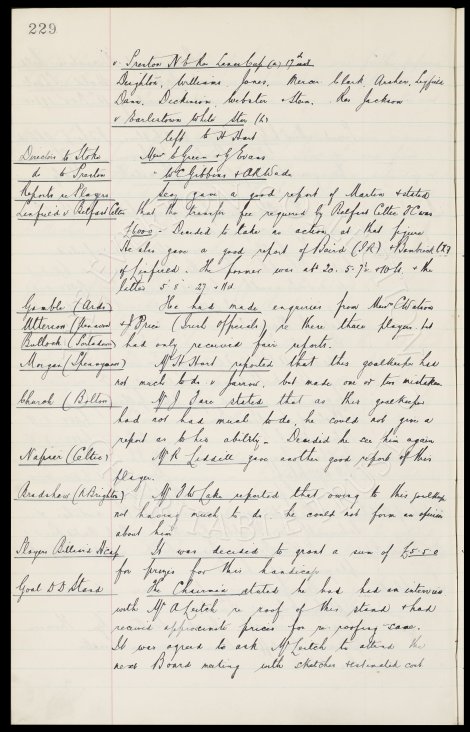 229
v Preston N E Res Lancs Cup (a) 17th inst
Deighton, Williams, Jones, Mercer Clark Archer, Leyfield
Dunn, Dickinson, Webster & Stein. Res Jackson
v Earlestown White Star (h)
left to H Hart
Directors to Stoke Messrs E Green & J Evans
do to Preston " W C Gibbins & A R Wade
Reports re Players Secy gave a good report of Martin & stated
Linfield v Belfast Celtic that the transfer fee required by Belfast Celtic F C was
£6000 - Decided to take no action at that figure
He also gave a good report of Baird (I.R.) &
of Linfield. The former was at 20. 5.7½ & the
latter 5.8. 27
Gamble (Ards) He had made enquiries from Messrs C Watson
Utterson (Glenavon) & J Price (Irish Officials) re these three players but
Bullock (Portadown) had only received fair reports.
Morgan (Spennymoor) Mr H Hart reported that this goalkeeper had
not much to do v Jarrow, but made one or two mistakes
Church (Bolton) Mr J stated that as this goalkeeper
had not had much to do, he could not give a
report as to his ability - Decided to see him again
Napier (Celtic) Mr R Liddell gave another good report of this
player.
Bradshaw (N Brighton) Mr reported that owing to this goalkeeper
not having much to do he could not form an opinion
about him
Players Billiard Hcap It was decided to grant a sum of £5.5.0
for prizes for this handicap
Goal D D Stand The Chairman stated he had had an interview
with Mr A Leitch re roof of this stand & had
received approximate prices for re-roofing same.
It was agreed to ask Mr Leitch to attend the
next Board meeting with sketches & estimated cost